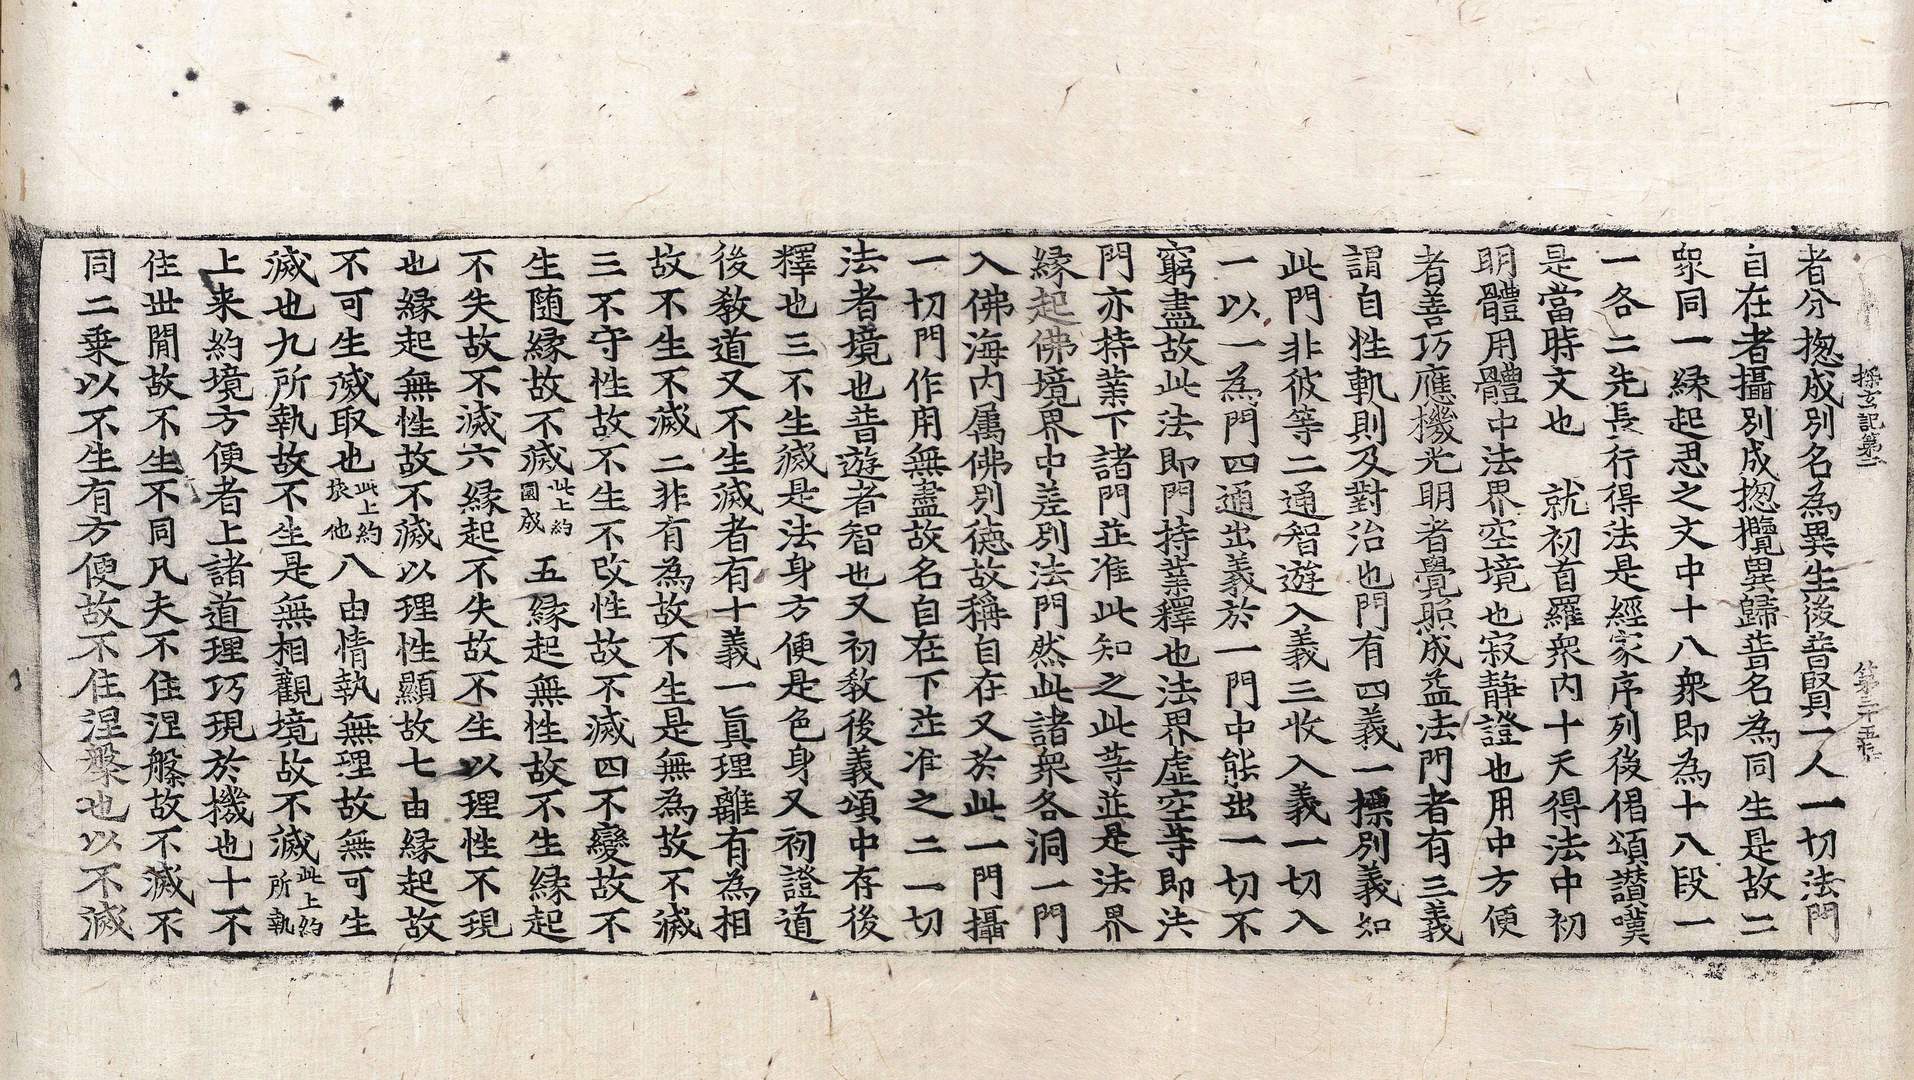 探玄記第二　第三十五張
者分揔成別名為異生後普賢一人一切法門
自在者攝別成揔攬異歸普名為同生是故二
衆同一緣起思之文中十八衆即為十八段一
一各二先長行得法是經家序列後偈頌讃嘆
是當時文也　就初首羅衆內十天得法中初
明體用體中法界空境也寂靜證也用中方便
者善巧應機光明者覺照成益法門者有三義
謂自性軌則及對治也門有四義一標別義知
此門非彼等二通智遊入義三收入義一切入
一以一為門四通出義於一門中能出一切不
窮盡故此法即門持業釋也法界虛空等即法
門亦持業下諸門並准此知之此等並是法界
緣起佛境界中差別法門然此諸衆各洞一門
入佛海內属佛別徳故稱自在又於此一門攝
一切門作用無盡故名自在下並准之二一切
法者境也普遊者智也又初教後義頌中存後
釋也三不生滅是法身方便是色身又初證道
後教道又不生滅者有十義一眞理離有為相
故不生不滅二非有為故不生是無為故不滅
三不守性故不生不改性故不滅四不變故不
生随緣故不滅此上約圓成五緣起無性故不生緣起
不失故不滅六緣起不失故不生以理性不現
也緣起無性故不滅以理性顯故七由緣起故
不可生滅取也此上約依他八由情執無理故無可生
滅也九所執故不生是無相觀境故不滅此上約所執
上来約境方便者上諸道理巧現於機也十不
住世間故不生不同凡夫不住涅槃故不滅不
同二乗以不生有方便故不住涅槃也以不滅